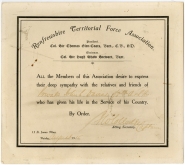 Renfrewshire Territorial Force Association.
President
Col. Sir Thomas Glen-Coats, Bart., C.B., V.D.
Chairman
Col. Sir Hugh Shaw Stewart, Bart.
ALL the Members of this Association desire to express
their deep sympathy with the relatives and friends of
who has given his life in the Service of his Country.
By Order.
Secretary.